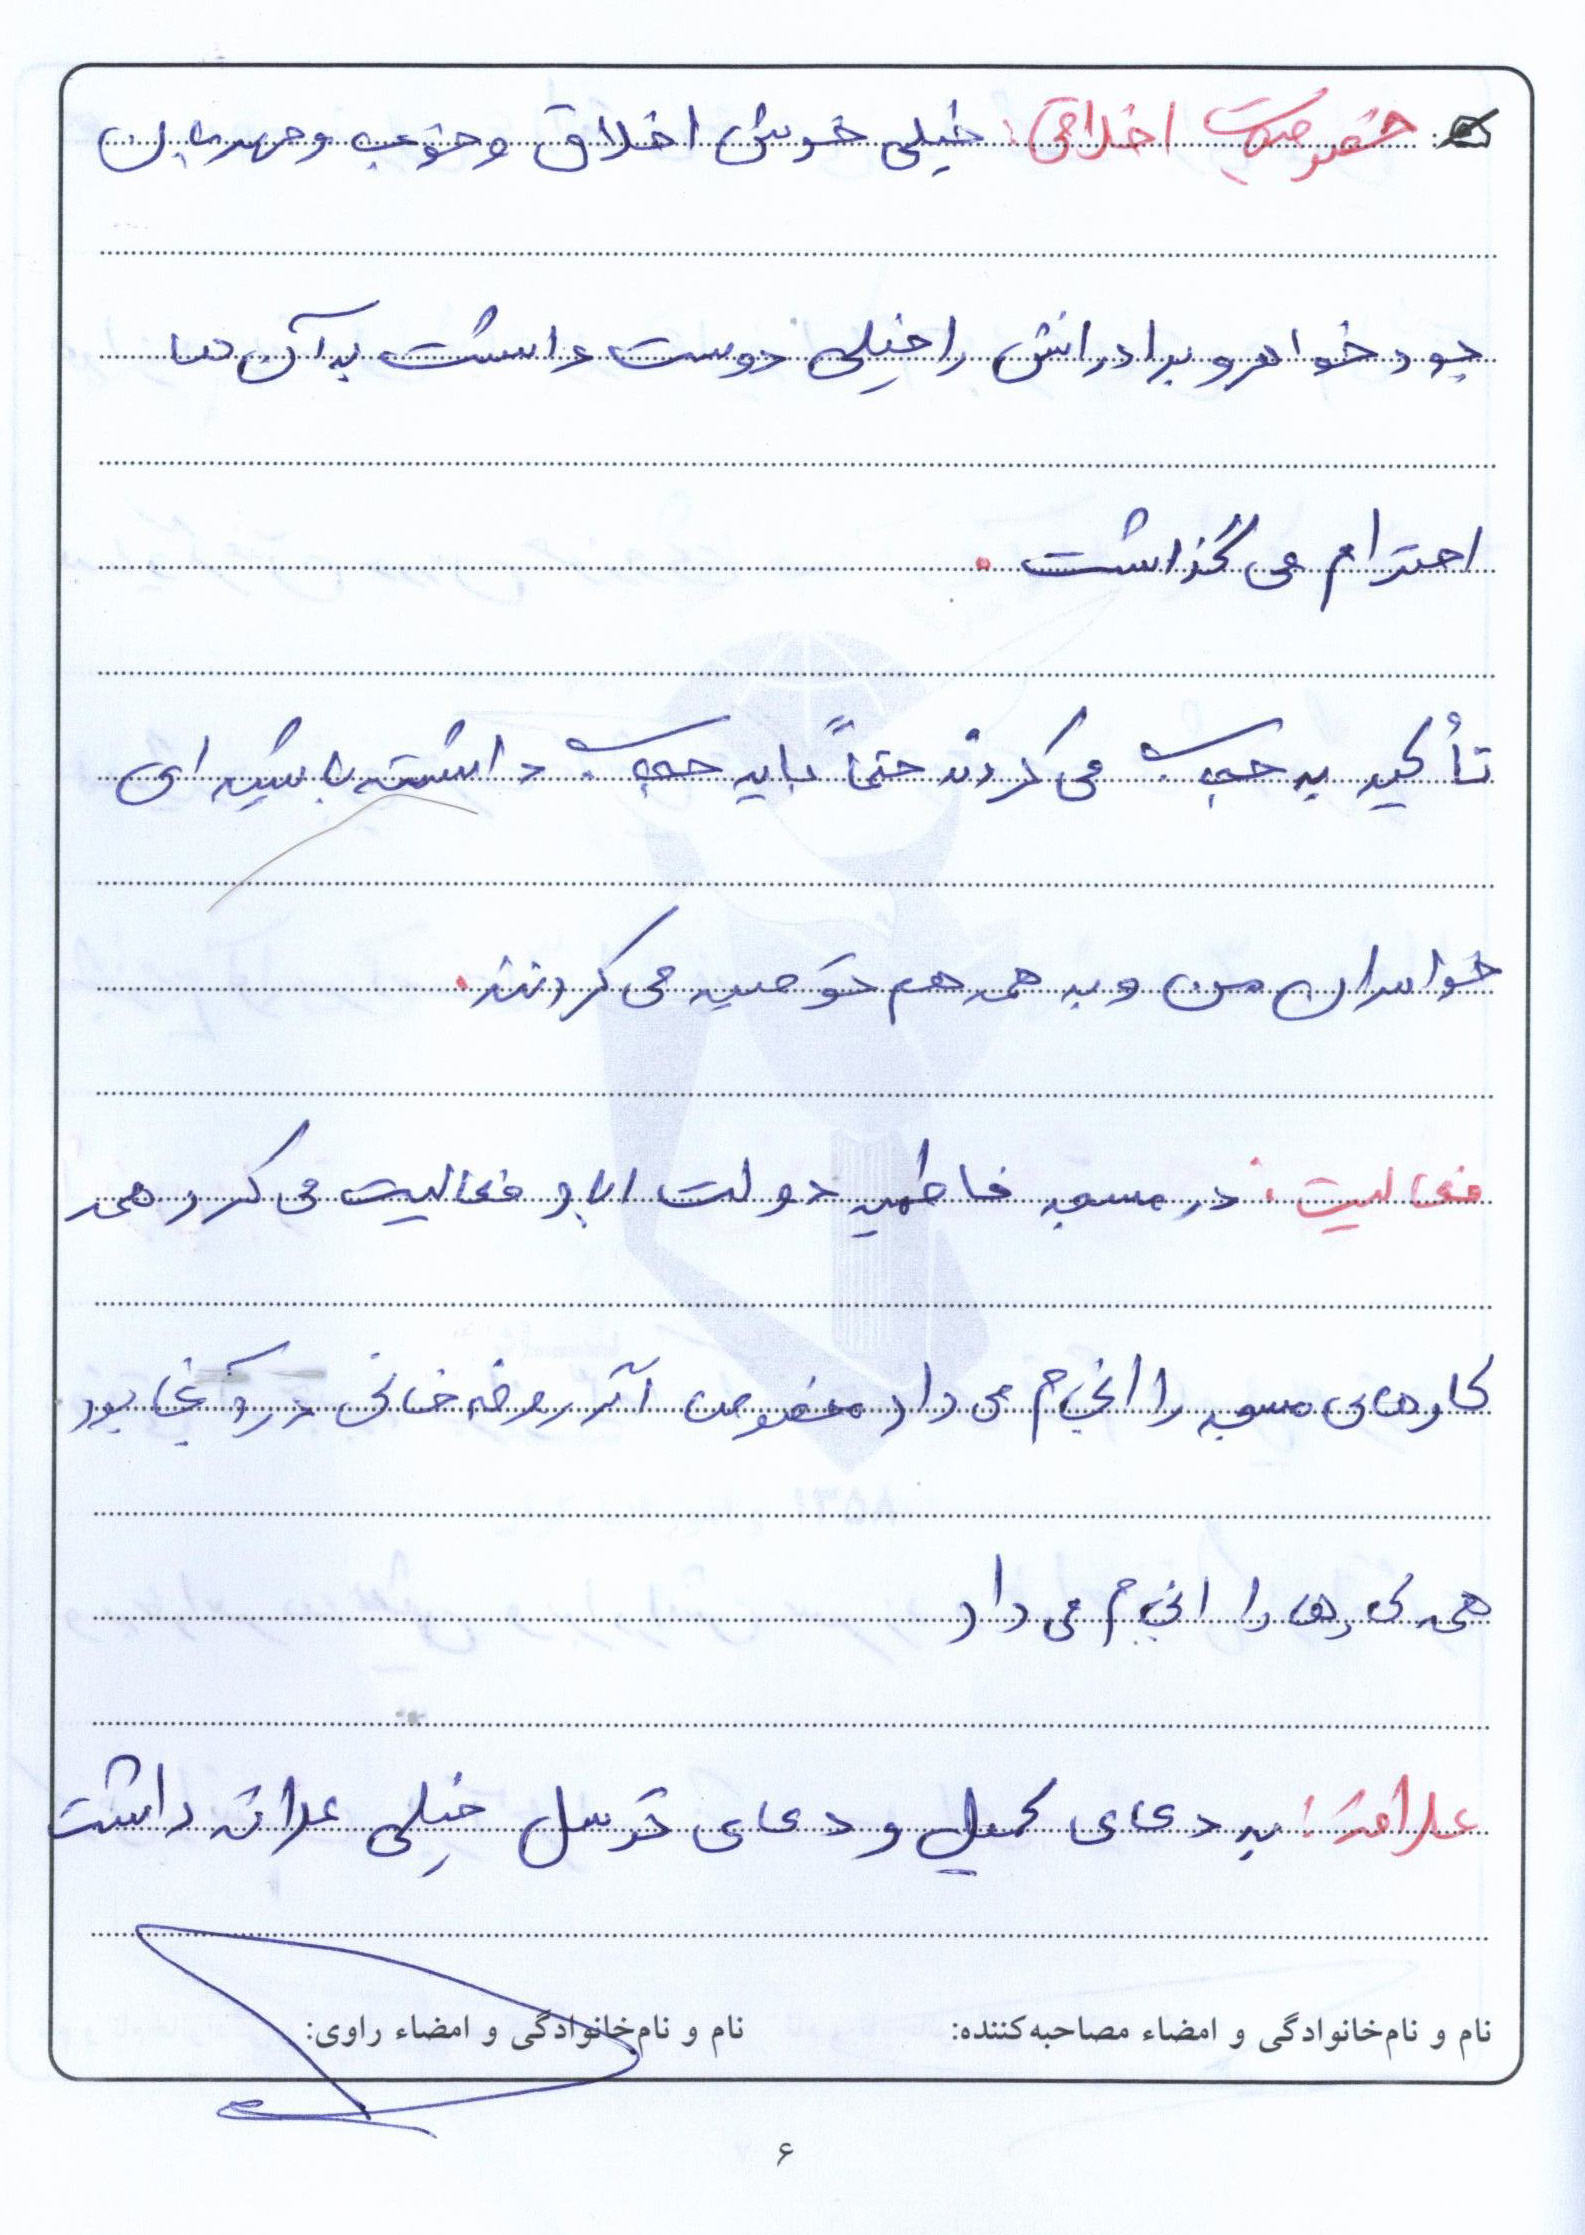 خصوصیت اخلاقی: خیلی خوش اخلاق و خوب و مهربان
بود خواهر و برادرانش را خیلی دوست داشت به آن ها
احترام می گذاشت.
تأکید به حجاب می کردند حتماً باید حجاب داشته باشید ای
خواهران من و به همه هم توصیه می کردند.
فعالیت: در مسجد فاطمیه دولت اباد فعالیت می کرد همه
کارهای مسجد را انجام می داد مخصوص اگر روضه خانی در آنجا بود
همه کارها را انجام می داد
علاقه: به دعای کمیل و دعای توسل خیلی علاقه داشت
نام و نام‌خانوادگی و امضاء مصاحبه‌کننده: نام و نام‌خانوادگی و امضاء راوی:
۶